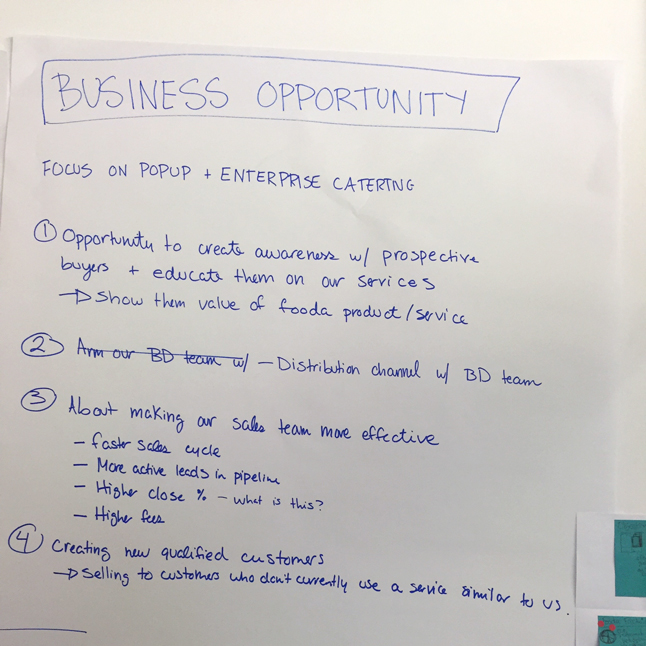 BUSINESS OPPORTUNITY
FOCUS ON POPUP + ENTERPRISE CATERING
① Opportunity to create awareness w/ prospective
buyers + educate them on our services
→ Show them value of fooda product/service
② Arm our BD team w/ – Distribution channel w/ BD team
③ About making our sales team more effective
– faster sales cycle
– More active leads in pipeline
– Higher close % – what is this?
– Higher fees
④ Creating new qualified customers
→ Selling to customers who don't currently use a service similar to us.